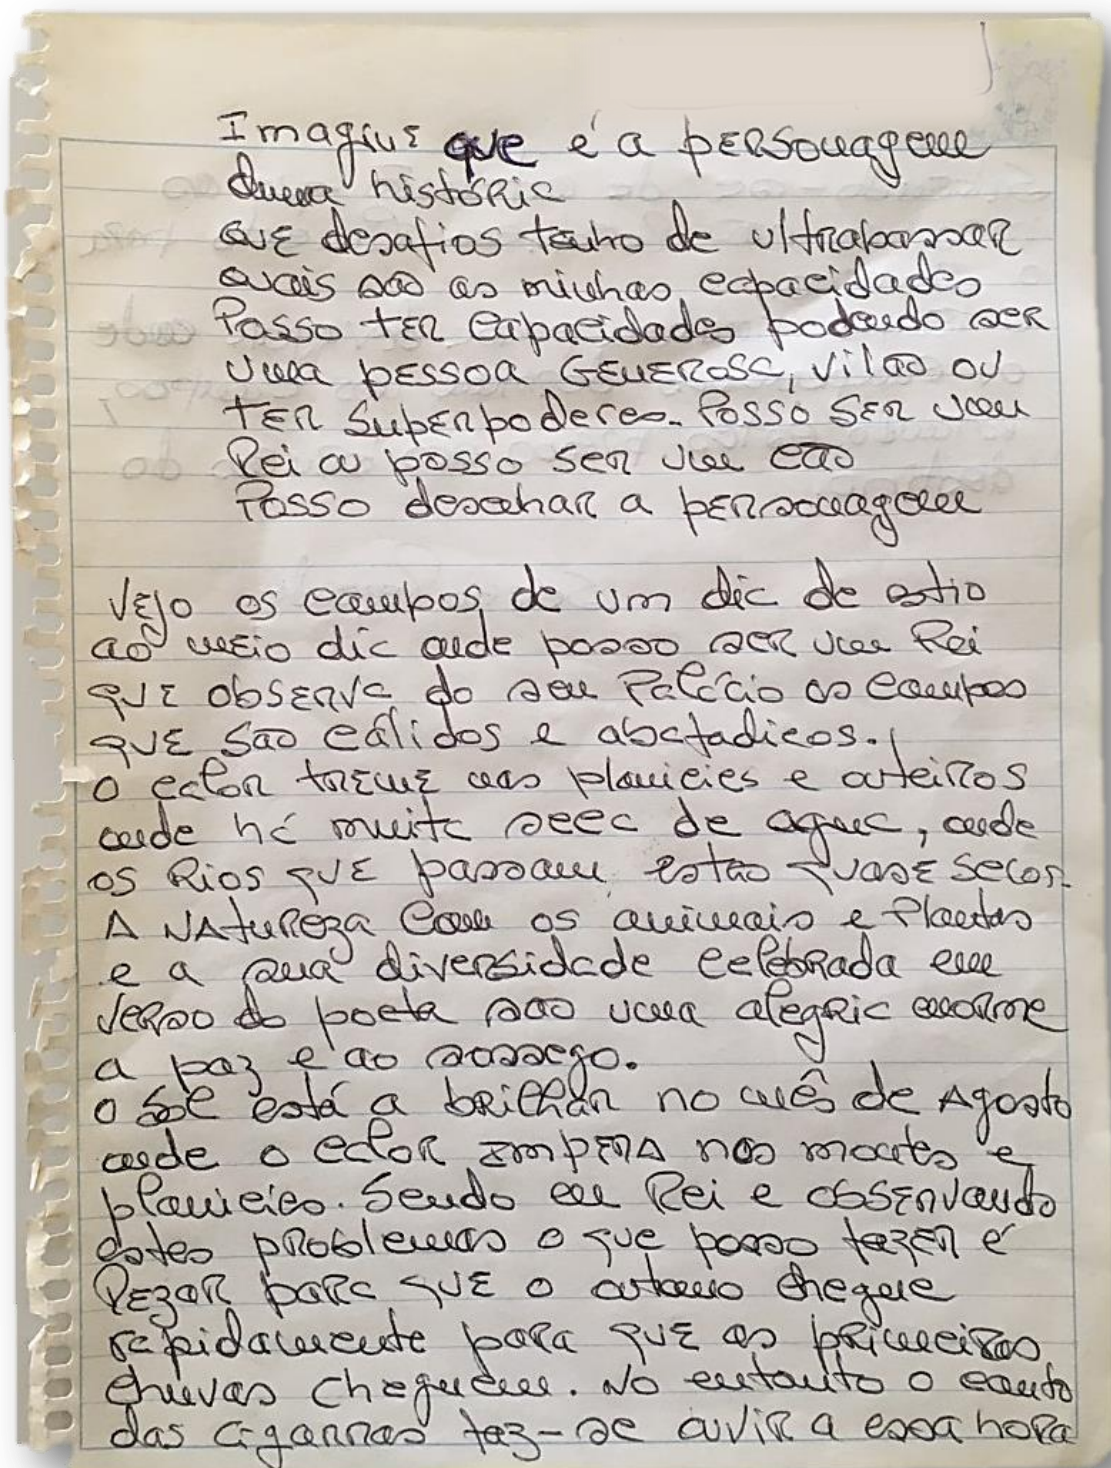 Imagine que é a personagem
duma história
que desafios tenho de ultrapassar
quais são as minhas capacidades
Posso ter capacidades podendo ser
uma pessoa generosa, vilão ou
ter superpoderes. Posso ser um
Rei ou posso ser um cão
Posso desenhar a personagem
Vejo os campos de um dia de estio
ao meio dia onde posso ser um Rei
que observa do seu Palácio os campos
que são cálidos e abafadicos.
o calor treme nas planicies e outeiros
onde há muita seca de agua, onde
os Rios que passam estão quase secos.
A Natureza com os animais e Plantas
e a sua diversidade celebrada em
verso do poeta são uma alegria enorme
a paz e ao sossego.
o sol está a brilhar no mês de Agosto
onde o calor impera nos montes e
planicies. Sendo eu Rei e observando
estes problemas o que posso fazer é
Rezar para que o outono chegue
rapidamente para que as primeiras
chuvas cheguem. No entanto o canto
das cigarras faz-se ouvir a essa hora